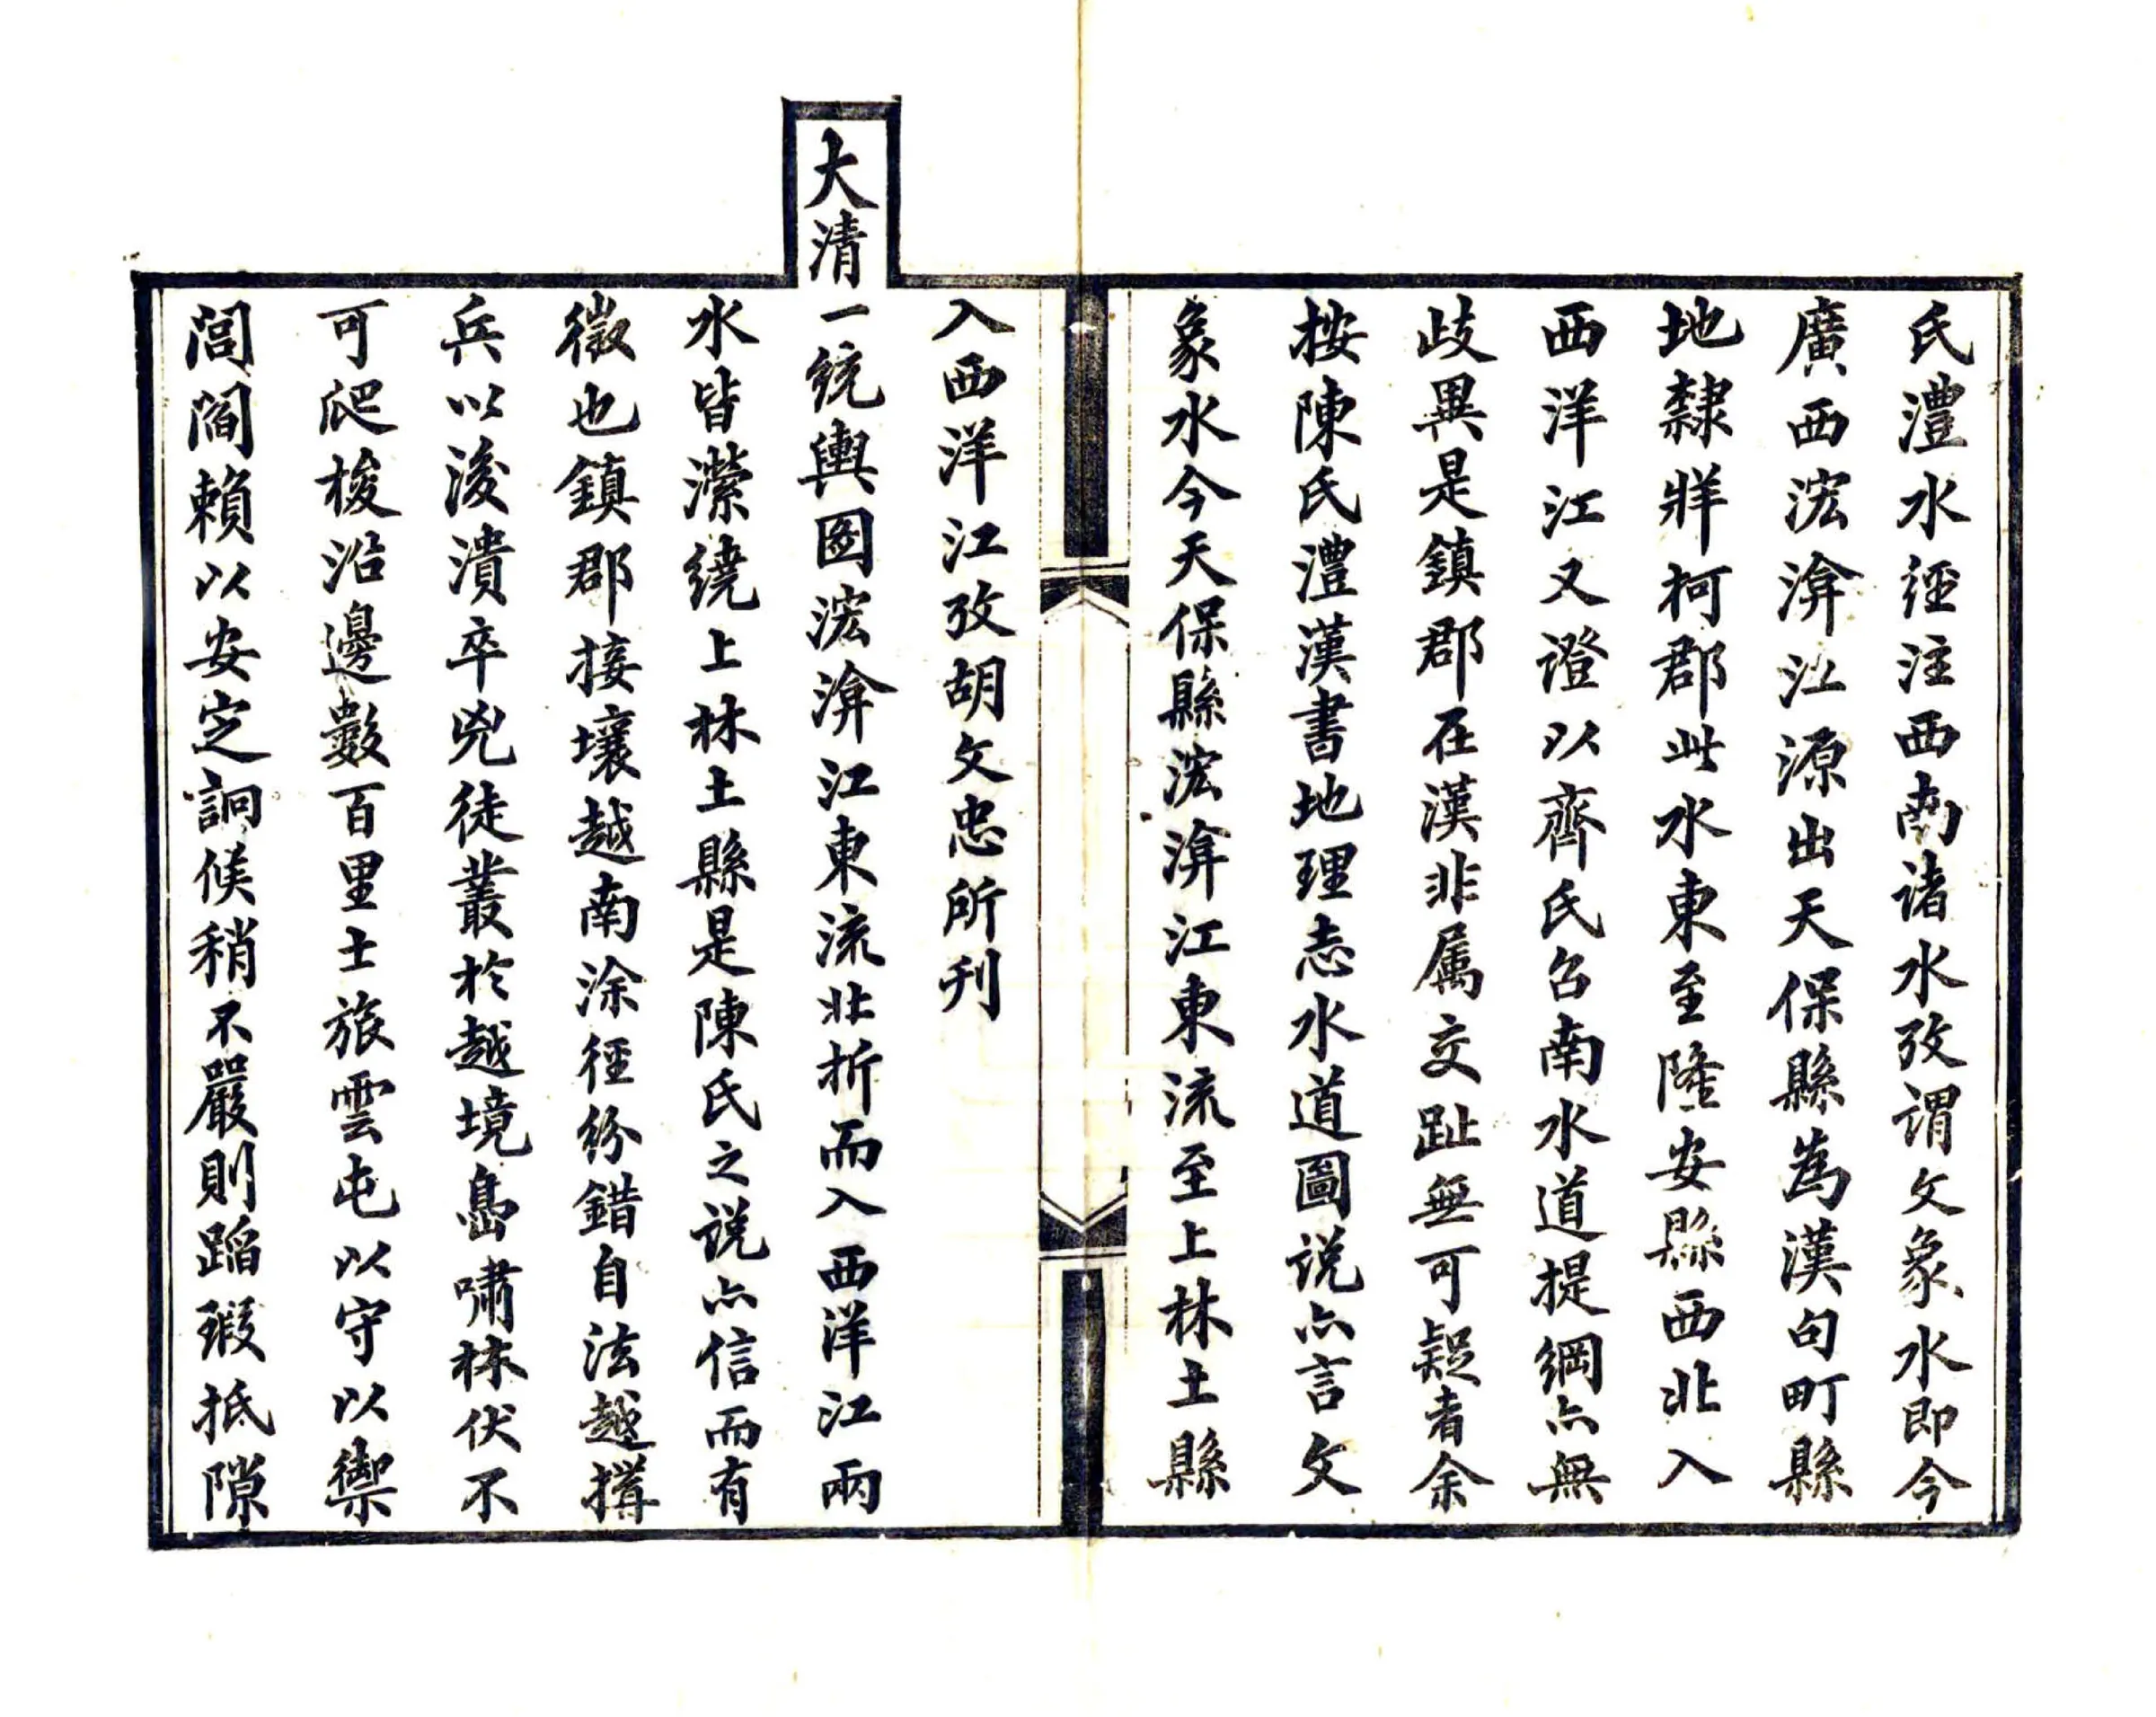 氏澧水經注西南諸水攷謂文象水即今
廣西浤渰江源出天保縣為漢句町縣
地隸牂柯郡此水東至隆安縣西北入
西洋江又證以齊氏召南水道提綱亦無
歧異是鎮郡在漢非属交趾無可疑者余
按陳氏澧漢書地理志水道圖说亦言文
象水今天保縣浤渰江東流至上林土縣
入西洋江攷胡文忠所刊
大清一統輿圖浤渰江東流北折而入西洋江兩
水皆瀠繞上林土縣是陳氏之说亦信而有
徵也鎮郡接壤越南涂徑紛錯自法越撙
兵以浚潰卒兇徒叢於越境嵒嘯林伏不
可爬梭沿邊數百里士旅雲屯以守以禦
閭閻賴以安定詗候稍不嚴則蹈瑕抵隙